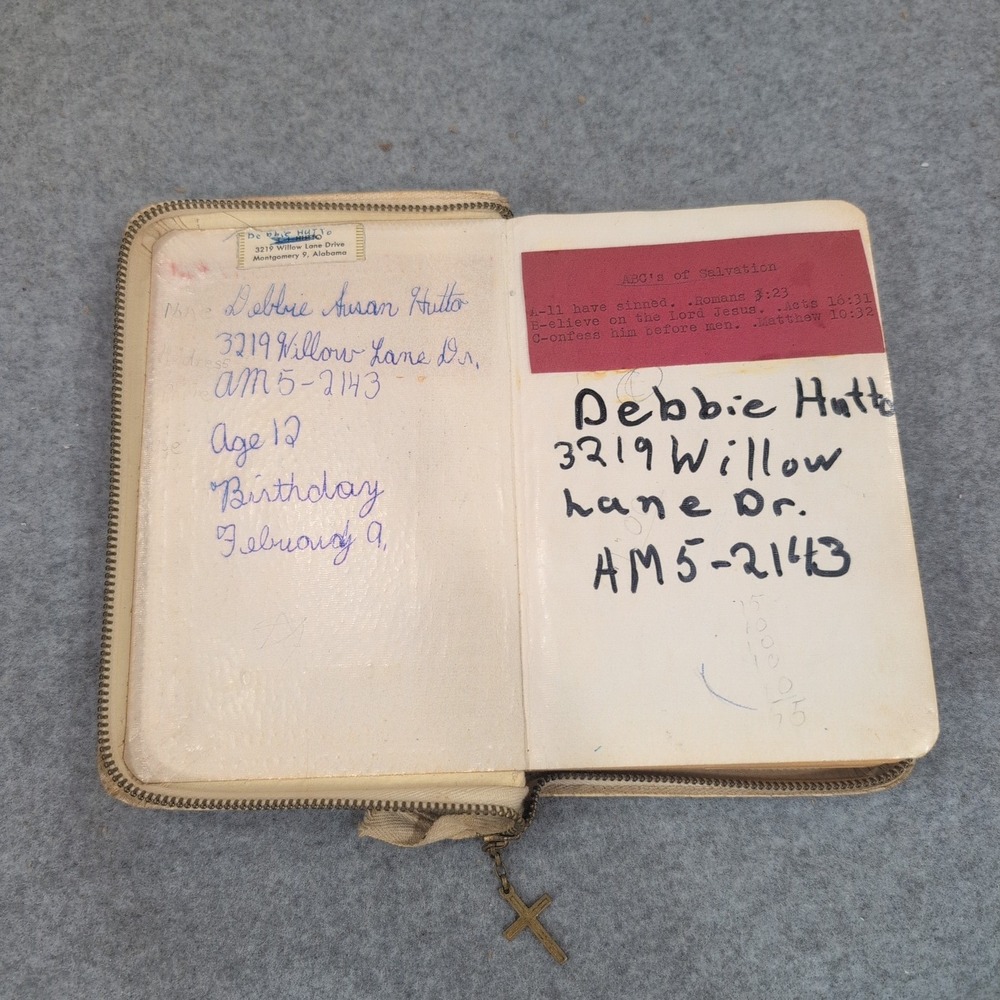 Debbie Hutto
3219 Willow Lane Drive
Montgomery 9, Alabama
Debbie Susan Hutto
3219 Willow Lane Dr.
AM5-2143
Age 12
Birthday
February 9,
ABC's of Salvation
A-ll have sinned. .Romans 3:23
B-elieve on the Lord Jesus. .Acts 16:31
C-onfess him before men. .Matthew 10:32
Debbie Hutto
3219 Willow
Lane Dr.
AM5-2143